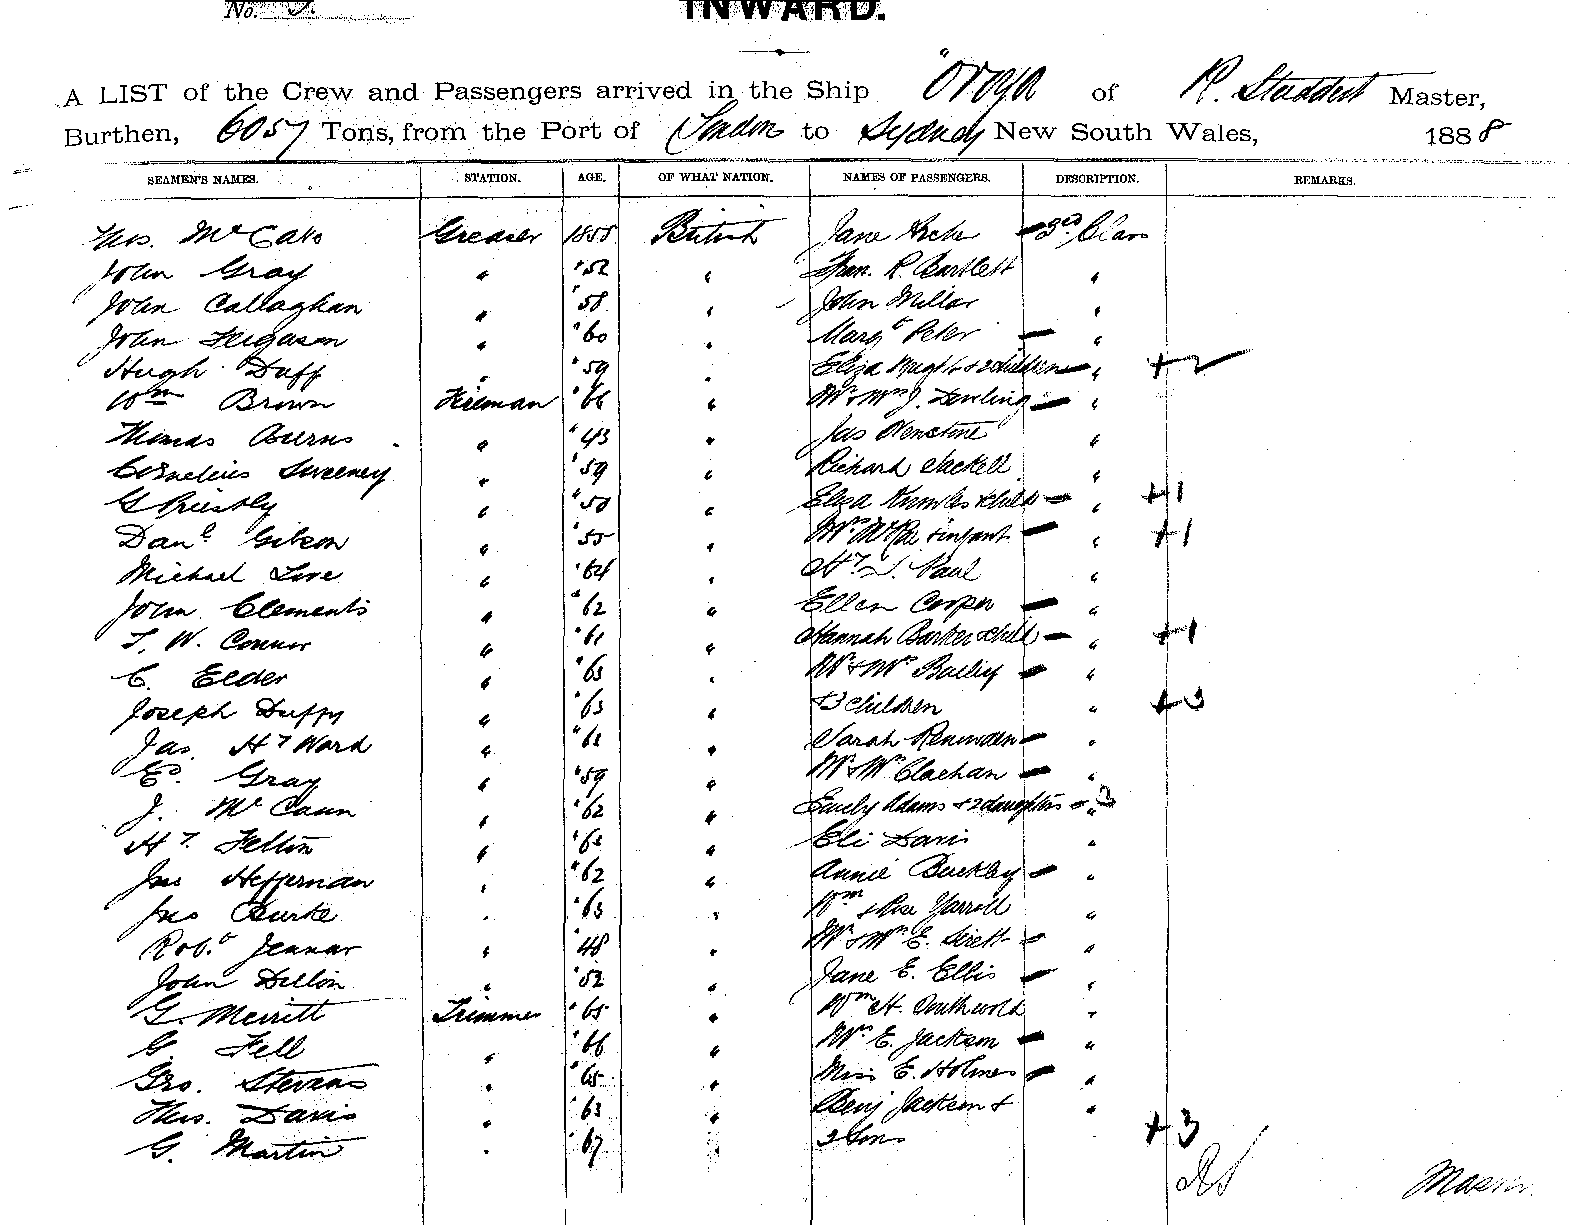 No. 9.
INWARD.
A LIST of the Crew and Passengers arrived in the Ship "Oroya of R. Studdert Master,
Burthen, 6057 Tons, from the Port of London to Sydney New South Wales, 1888
SEAMEN'S NAMES. STATION. AGE. OF WHAT NATION. NAMES OF PASSENGERS. DESCRIPTION. REMARKS.
Thos. McCabe Greaser 1855 British Jane 3rd Class
John Gray " "52 " Fran. R. Bartlett "
John Callaghan " "58 " John Millar "
John Ferguson " "60 " Margt Peter "
Hugh Duff " "59 " Eliza & 2 children " +2
Wm Brown Fireman "66 " Mr & Mrs J. Dowling "
Thomas Burns " "43 " Jas "
Cornelius Sweeney " "59 " Richard Jackell "
G Priestly " "50 " Eliza Knowles & child " +1
Danl Gibson " "55 " Mrs McRae & infant " +1
Michael Love " "64 " Hy L. Paul "
John Clements " "62 " Ellen Cooper "
T. W. Connor " "61 " Hannah Barker & child " +1
C. Elder " "63 " Mr & Mrs Bailey "
Joseph Duffy " "63 " & 3 children " +3
Jas. Hy Ward " "61 " Sarah Renowden "
Ed. Gray " "59 " Mr & Mrs Clachan "
J. McCann " "62 " Emily Adams & 2 daughters " 3
Hy. Felton " "63 " Eli Davis "
Jno Heffernan " "62 " Annie Buckley "
Jno Burke " "63 " Wm & Rose Yarroll "
Robt Jennar " "48 " Mr & Mrs E. Sirett "
John Dillon " "52 " Jane E. Ellis "
G. Merritt Trimmer "65 " Wm H. Southwold "
G. Fell " "66 " Mrs E. Jackson "
Geo. Stevens " "65 " Miss E. Holmes "
Thos. Davis " "63 " Benj Jackson & "
G. Martin " "67 " 2 Sons +3
RS Master